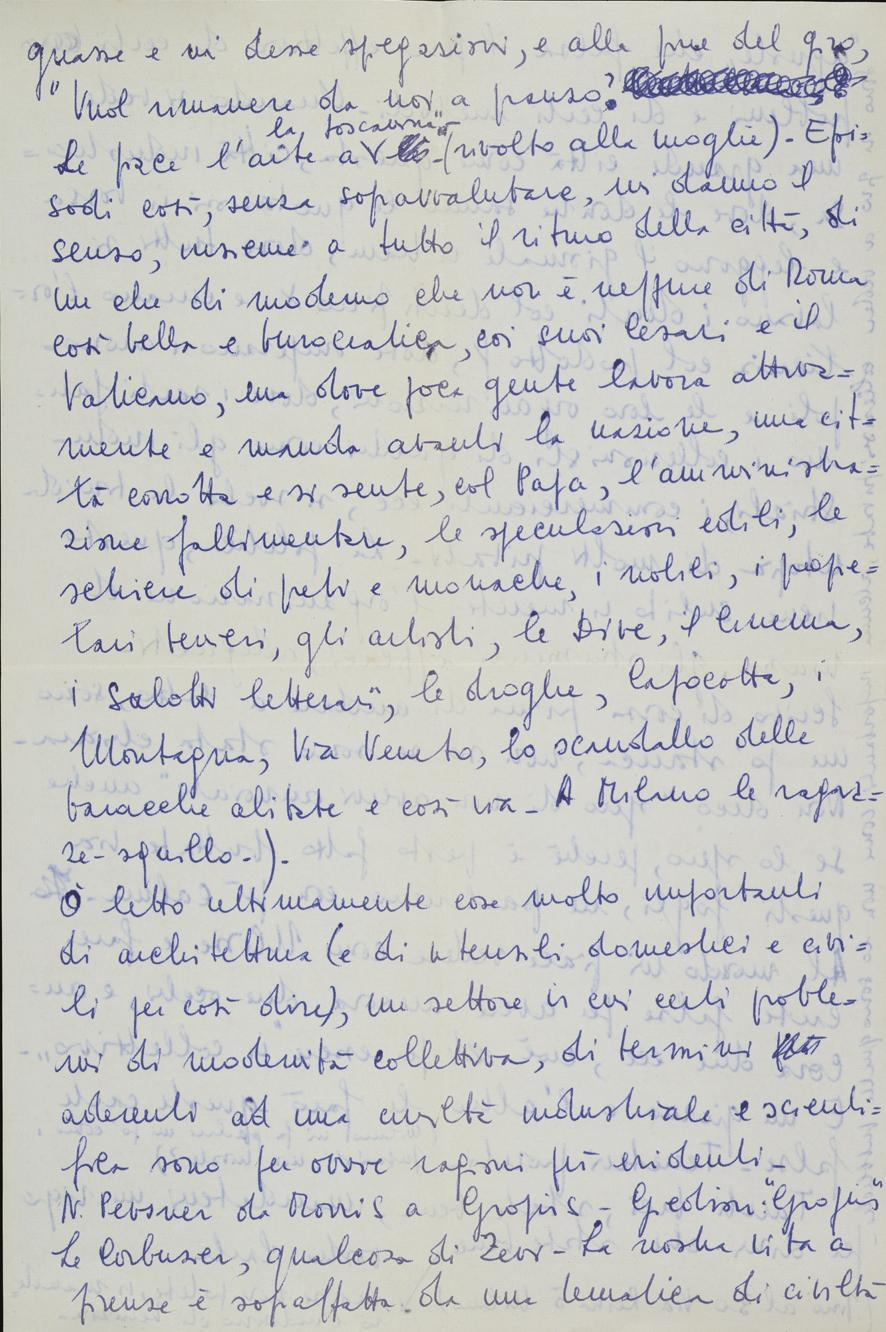 guasse e mi desse spegazioni, e alla fine del giro,
"Vuol rimanere da noi a pranzo?
la toscanina"
Le piace l'arte a V - (rivolto alla moglie) - Epi=
sodi così, senza sopravvalutare, mi danno il
senso, insieme a tutto il ritmo della città, di
un che di moderno che non è neppure di Roma
così bella e burocratica, coi suoi Cesari e il
Vaticano, ma dove poca gente lavora attiva=
mente e manda avanti la nazione, una cit=
tà corrotta e si sente, col Papa, l'amministra=
zione fallimentare, le speculazioni edili, le
schiere di preti e monache, i nobili, i proprie=
tari terrieri, gli artisti, le Dive, il Cinema,
i salotti letterari, le droghe, Capocotta, i
Montagna, Via Veneto, lo scandallo delle
baracche abitate e così via - A Milano le ragaz=
ze-squillo.).
Ò letto ultimamente cose molto importanti
di architettura (e di utensili domestici e civi=
li per così dire), un settore in cui certi proble-
mi di modernità collettiva, di termini
aderenti ad una civiltà industriale e scienti=
fica sono per ovvie ragioni più evidenti -
N. Pevsner da Morris a Gropius - Giedion: "Gropius"
Le Corbusier, qualcosa di Zevi - La nostra vita a
Firenze è sopraffatta da una tematica di civiltà